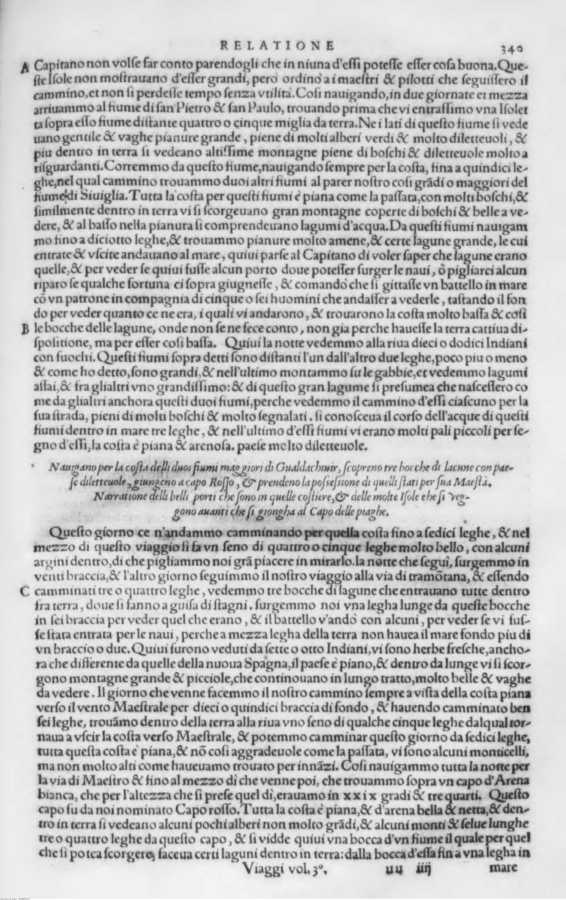 RELATIONE 340
A Capitano non volse far conto parendogli che in niuna d'essi potesse esser cosa buona. Que-
ste Isole non mostrauano d'esser grandi, pero ordinò a i maestri & pilotti che seguissero il
cammino, et non si perdesse tempo senza vtilità. Cosi nauigando, in due giornate et mezza
arriuammo al fiume di san Pietro & san Paulo, trouando prima che vi entrassimo vna Isolet
ta sopra esso fiume distante quattro o cinque miglia da terra. Ne i lati di questo fiume si vede
uano gentile & vaghe pianure grande, piene di molti alberi verdi & molto diletteuoli, &
piu dentro in terra si vedeano altissime montagne piene di boschi & diletteuole molto a
risguardanti. Corremmo da questo fiume, nauigando sempre per la costa, fina a quindici le-
ghe, nel qual cammino trouammo duoi altri fiumi al parer nostro cosi grãdi o maggiori del
fiume di Siuiglia. Tutta la costa per questi fiumi è piana come la passata, con molti boschi, &
similmente dentro in terra vi si scorgeuano gran montagne coperte di boschi & belle a ve-
dere, & al basso nella pianura si comprendeuano lagumi d'acqua. Da questi fiumi nauigam
mo fino a diciotto leghe, & trouammo pianure molto amene, & certe lagune grande, le cui
entrate & vscite andauano al mare, quiui parse al Capitano di voler saper che lagune erano
quelle, & per veder se quiui fusse alcun porto doue potesser surger le naui, ò pigliarci alcun
riparo se qualche fortuna ci sopra giugnesse, & comandò che si gittasse vn battello in mare
cõ vn patrone in compagnia di cinque o sei huomini che andasser a vederle, tastando il fon
do per veder quanto ce ne era, i quali vi andarono, & trouarono la costa molto bassa & cosi
B le bocche delle lagune, onde non se ne fece conto, non gia perche hauesse la terra cattiua di-
spolitione, ma per esser cosi bassa. Quiui la notte vedemmo alla riua dieci o dodici Indiani
con fuochi. Questi fiumi sopra detti sono distanti l'un dall'altro due leghe, poco piu o meno
& come ho detto, sono grandi, & nell'ultimo montammo su le gabbie, et vedemmo lagumi
assai, & fra gli altri vno grandissimo: & di questo gran lagume si presumea che nascessero co
me da gli altri anchora questi duoi fiumi, perche vedemmo il cammino d'essi ciascuno per la
sua strada, pieni di molti boschi & molto segnalati. si conosceua il corso dell'acque di questi
fiumi dentro in mare tre leghe, & nell'ultimo d'essi fiumi vi erano molti pali piccoli per se-
gno d'essi, la costa è piana & arenosa. paese molto diletteuole.
Nauigano per la costa delli duoi fiumi maggiori di Gualdachiuir, scopreno tre bocche di lacune con pae-
se diletteuole, giungeno a capo Rosso, & prendeno la possessione di quelli stati per sua Maestà.
Narratione delli belli porti che sono in quelle costiere, & delle molte Isole che si veg-
gono auanti che si giongha al Capo delle piaghe.
Questo giorno ce n'andammo camminando per quella costa fino a sedici leghe, & nel
mezzo di questo viaggio si fa vn seno di quattro o cinque leghe molto bello, con alcuni
argini dentro, di che pigliammo noi grã piacere in mirarlo. la notte che seguì, surgemmo in
venti braccia, & l'altro giorno seguimmo il nostro viaggio alla via di tramõtana, & essendo
C camminati tre o quattro leghe, vedemmo tre bocche di lagune che entrauano tutte dentro
fra terra, doue si fanno a guisa di stagni. surgemmo noi vna legha lunge da queste bocche
in sei braccia per veder quel che erano, & il battello v'andò con alcuni, per veder se vi fus-
se stata entrata per le naui, perche a mezza legha della terra non hauea il mare fondo piu di
vn braccio o due. Quiui furono veduti da sette o otto Indiani, vi sono herbe fresche, ancho-
ra che differente da quelle della nuoua Spagna, il paese è piano, & dentro da lunge vi si scor-
gono montagne grande & picciole, che continouano in lungo tratto, molto belle & vaghe
da vedere. Il giorno che venne facemmo il nostro cammino sempre a vista della costa piana
verso il vento Maestrale per dieci o quindici braccia di fondo, & hauendo camminato ben
sei leghe, trouãmo dentro della terra alla riua vno seno di qualche cinque leghe dal qual tor-
naua a vscir la costa verso Maestrale, & potemmo camminar questo giorno da sedici leghe,
tutta questa costa è piana, & nõ cosi aggradeuole come la passata, vi sono alcuni monticelli,
ma non molto alti come haueuamo trouato per innãzi. Cosi nauigammo tutta la notte per
la via di Maestro & fino al mezzo di che venne poi, che trouammo sopra vn capo d'Arena
bianca, che per l'altezza che si prese quel dì, erauamo in xxix gradi & tre quarti. Questo
capo fu da noi nominato Capo rosso. Tutta la costa è piana, & d'arena bella & netta, & den-
tro in terra si vedeano alcuni pochi alberi non molto grãdi, & alcuni monti & selue lunghe
tre o quattro leghe da questo capo, & si vidde quiui vna bocca d'vn fiume il quale per quel
che si potea scorgere, faceua certi laguni dentro in terra: dalla bocca d'essa fin a vna legha in
Viaggi vol. 3°. uu iiij mare